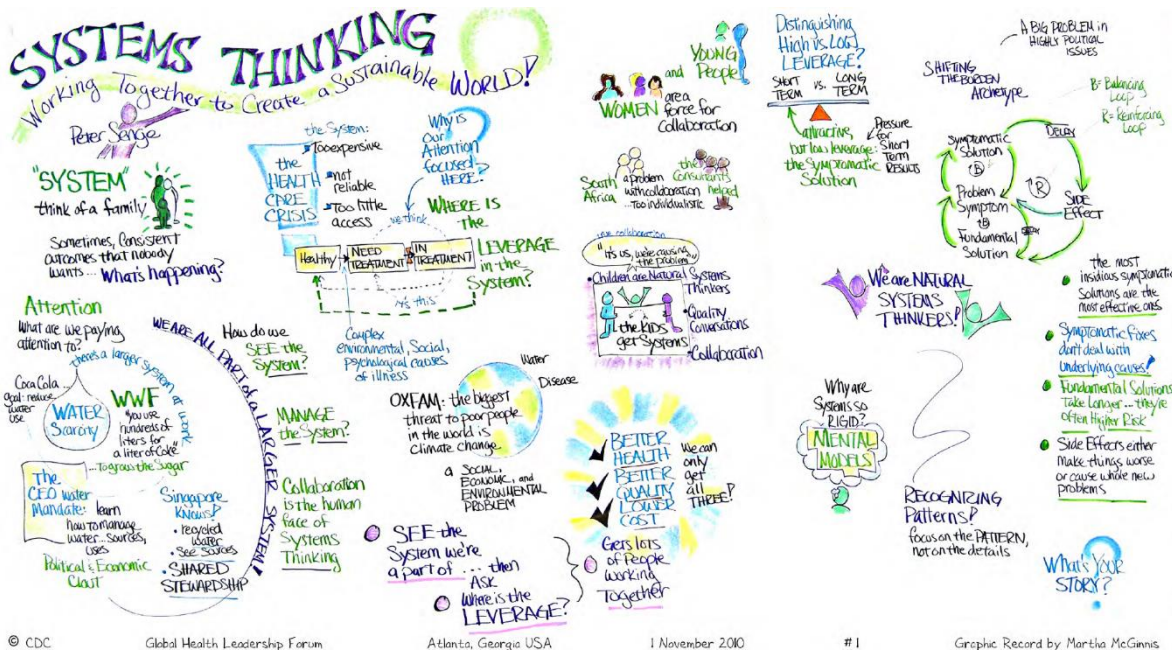 SYSTEMS THINKING
Working Together to Create a Sustainable WORLD!
Peter Senge
"SYSTEM"
think of a family
Sometimes, Consistent
outcomes that nobody
wants... What's happening?
Attention
What are we paying
attention to?
there's a larger system at work
Coca Cola...
goal: reduce
water
use
WATER
Scarcity
WWF
"you use
hundreds of
liters for
a liter of Coke"
...to grow the Sugar
The
CEO water
Mandate: learn
how to manage
water... sources,
uses
Political & Economic
Clout
Singapore
KNOWS!
• recycled
water
• See Sources
• SHARED
STEWARDSHIP
WE ARE ALL PART of a LARGER SYSTEM!
the System:
• Too expensive
• not
reliable
• Too little
access
the
HEALTH
CARE
CRISIS
Why is
Our
Attention
focused
HERE?
we think
WHERE IS
the
LEVERAGE
in the
System?
Healthy
NEED
TREATMENT
IN
TREATMENT
vs. this
Complex
environmental, Social,
psychological causes
of illness
How do we
SEE the
System?
MANAGE
the System?
Collaboration
is the human
face of
Systems
Thinking
Water
Disease
OXFAM: the biggest
threat to poor people
in the world is
climate change
a SOCIAL,
ECONOMIC, and
ENVIRONMENTAL
PROBLEM
SEE the
System we're
a part of ... then
ASK
Where is the
LEVERAGE?
YOUNG
and People
WOMEN are a
force for
Collaboration
South
Africa
a problem
with collaboration
... Too individualistic
the
Consultants
helped
true collaboration
"it's us, we're causing
the problem"
• Children are Natural Systems
Thinkers
the KIDS
get Systems
• Quality
Conversations
• Collaboration
BETTER
HEALTH
BETTER
QUALITY
LOWER
COST
We can
only
get
all
THREE!
Gets lots
of People
working
Together
Distinguishing
High vs. Low
LEVERAGE?
SHORT TERM vs. LONG TERM
attractive,
but low leverage:
the Symptomatic
Solution
Pressure
for
Short
Term
RESULTS
A BIG PROBLEM in
HIGHLY POLITICAL
ISSUES
SHIFTING
THE BURDEN
Archetype
B = Balancing
Loop
R = Reinforcing
Loop
Symptomatic
Solution
DELAY
B
R
Problem
Symptom
SIDE
EFFECT
B
Fundamental
Solution
We are NATURAL
SYSTEMS
THINKERS!
Why are
Systems so
RIGID?
MENTAL
MODELS
RECOGNIZING
Patterns!
focus on the PATTERN,
not on the details
the most
insidious symptomatic
Solutions are the
most effective ones
Symptomatic fixes
don't deal with
underlying causes!
Fundamental Solutions
Take Longer... they're
often Higher Risk
Side Effects either
make things worse
or cause whole new
problems
What's YOUR
STORY?
© CDC Global Health Leadership Forum Atlanta, Georgia USA 1 November 2010 #1 Graphic Record by Martha McGinnis